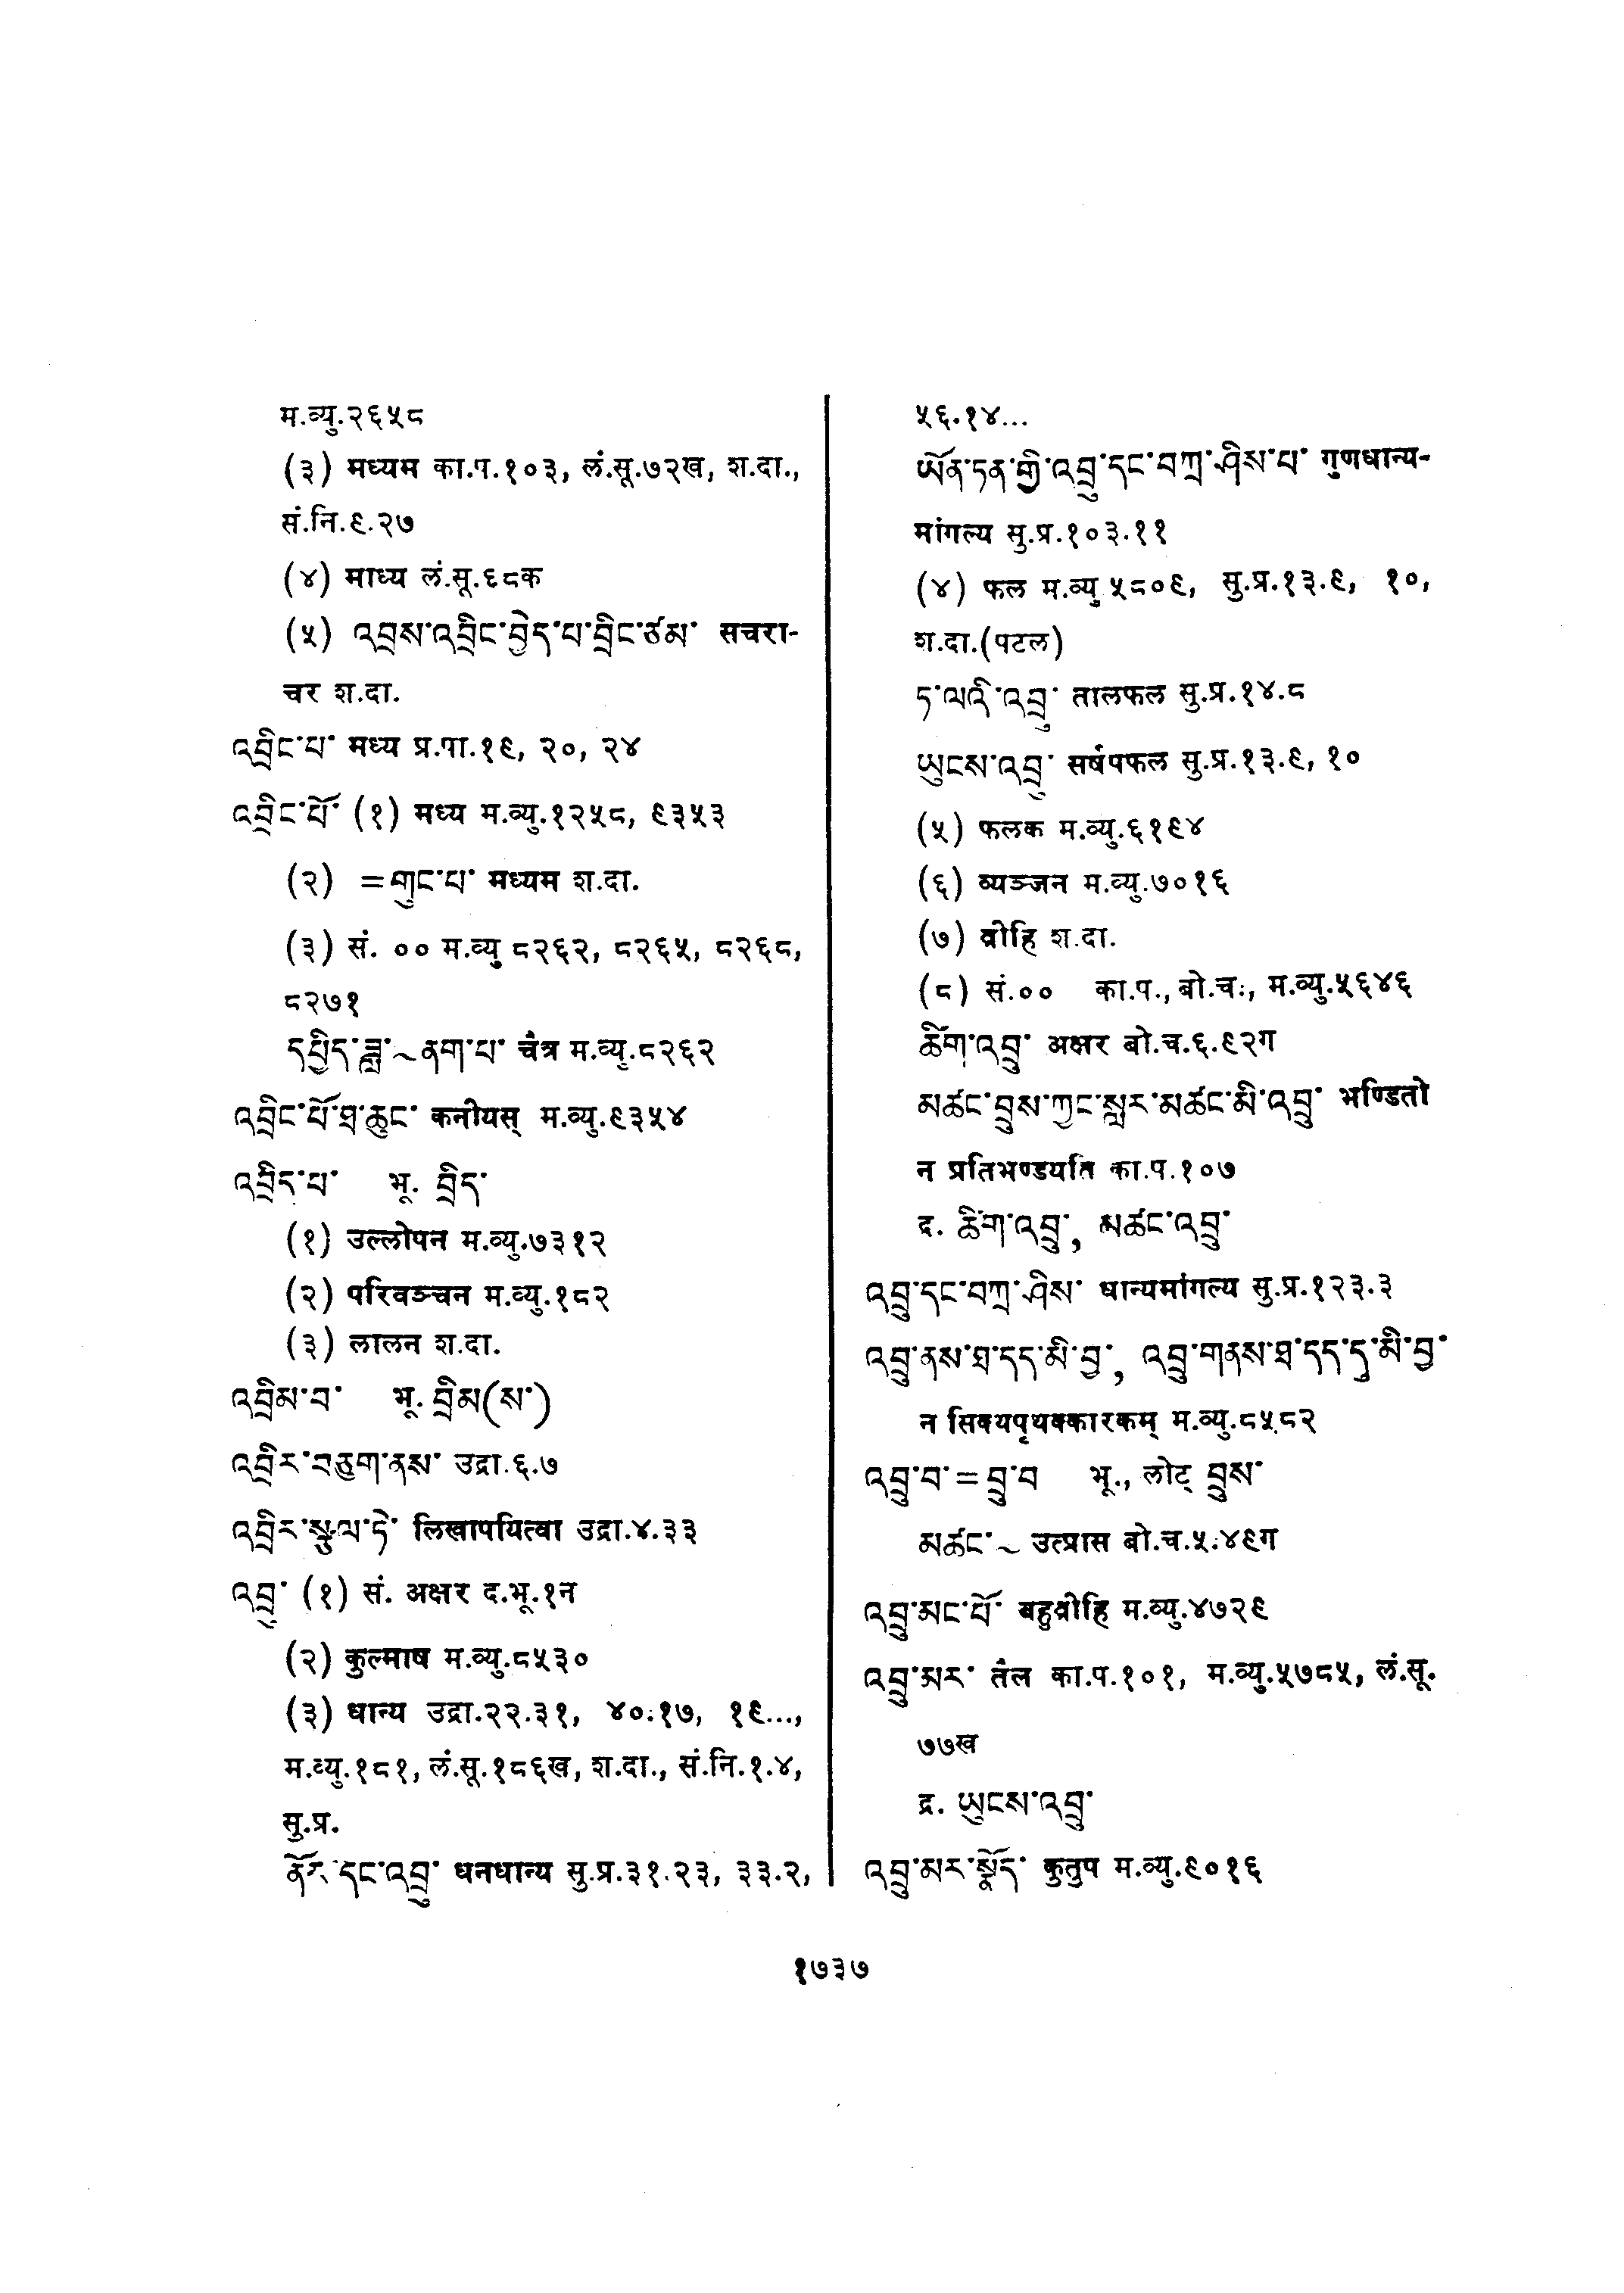 म.व्यु.२६५८
(३) मध्यम का.प.१०३, लं.सू.७२ख, श.दा.,
सं.नि.९.२७
(४) माध्य लं.सू.६८क
(५) འབྲས་འབྲིང་བྱེད་པ་བྲིང་ཙམ་ सचरा-
चर श.दा.
འབྲིང་པ་ मध्य प्र.पा.१९, २०, २४
འབྲིང་པོ་ (१) मध्य म.व्यु.१२५८, ९३५३
(२) =གུང་པ་ मध्यम श.दा.
(३) सं. ०० म.व्यु ८२६२, ८२६५, ८२६८,
८२७१
དཔྱིད་ཟླ་~ནག་པ་ चैत्र म.व्यु.८२६२
འབྲིང་པོ་ཐ་ཆུང་ कनीयस् म.व्यु.९३५४
འབྲིད་པ་ भू. བྲིད་
(१) उल्लोपन म.व्यु.७३१२
(२) परिवञ्चन म.व्यु.१८२
(३) लालन श.दा.
འབྲིམ་བ་ भू. བྲིམ(ས་)
འབྲིར་བཅུག་ནས་ उद्रा.६.७
འབྲིར་སྩུལ་ཏེ་ लिखापयित्वा उद्रा.४.३३
འབྲུ་ (१) सं. अक्षर द.भू.१न
(२) कुल्माष म.व्यु.८५३०
(३) धान्य उद्रा.२२.३१, ४०.१७, १९...,
म.व्यु.१८१, लं.सू.१८६ख, श.दा., सं.नि.१.४,
सु.प्र.
ནོར་དང་འབྲུ་ धनधान्य सु.प्र.३१.२३, ३३.२,
५६.१४...
ཡོན་ཏན་གྱི་འབྲུ་དང་བཀྲ་ཤིས་པ་ गुणधान्य-
मांगल्य सु.प्र.१०३.११
(४) फल म.व्यु ५८०९, सु.प्र.१३.९, १०,
श.दा.(पटल)
ཏ་ལའི་འབྲུ་ तालफल सु.प्र.१४.८
ཡུངས་འབྲུ་ सर्षपफल सु.प्र.१३.९, १०
(५) फलक म.व्यु.६१९४
(६) व्यञ्जन म.व्यु.७०१६
(७) व्रीहि श.दा.
(८) सं.०० का.प., बो.च., म.व्यु.५६४६
ཚིག་འབྲུ་ अक्षर बो.च.६.९२ग
མཚང་བྲུས་ཀྱང་སླར་མཚང་མི་འབྲུ་ भण्डितो
न प्रतिभण्डयति का.प.१०७
द्र. ཚིག་འབྲུ་, མཚང་འབྲུ་
འབྲུ་དང་བཀྲ་ཤིས་ धान्यमांगल्य सु.प्र.१२३.३
འབྲུ་ནས་ཐ་དད་མི་བྱ་, འབྲུ་གནས་ཐ་དད་དུ་མི་བྱ་
न सिक्थपृथक्कारकम् म.व्यु.८५८२
འབྲུ་བ་=བྲུ་བ भू., लोट् བྲུས་
མཚང་~ उत्प्रास बो.च.५.४९ग
འབྲུ་མང་པོ་ बहुव्रीहि म.व्यु.४७२९
འབྲུ་མར་ तैल का.प.१०१, म.व्यु.५७८५, लं.सू.
७७ख
द्र. ཡུངས་འབྲུ་
འབྲུ་མར་སྣོད་ कुतुप म.व्यु.९०१६
१७३७